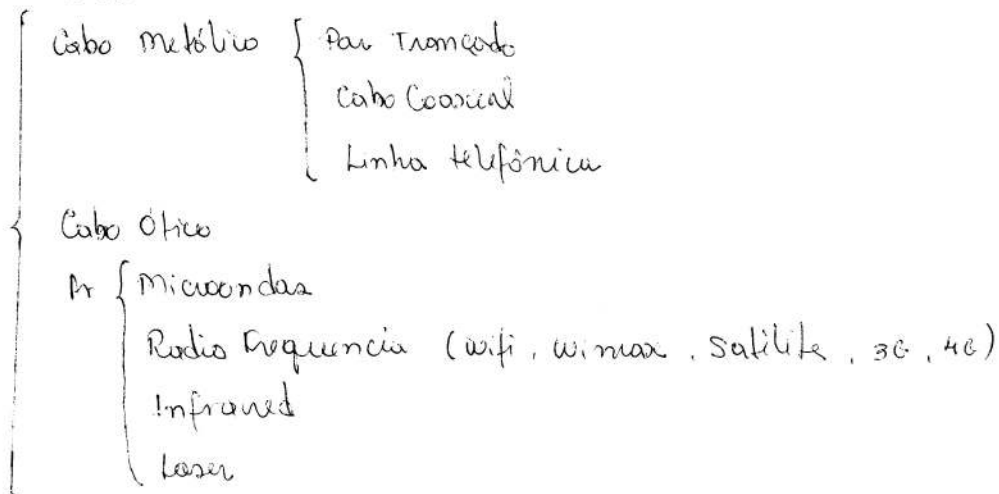 Cabo Metálico
Par Trançado
Cabo Coaxial
Linha telefônica
Cabo Ótico
Ar
Microondas
Radio Frequencia (wifi, wimax, Satilite, 3G, 4G)
Infrared
Laser